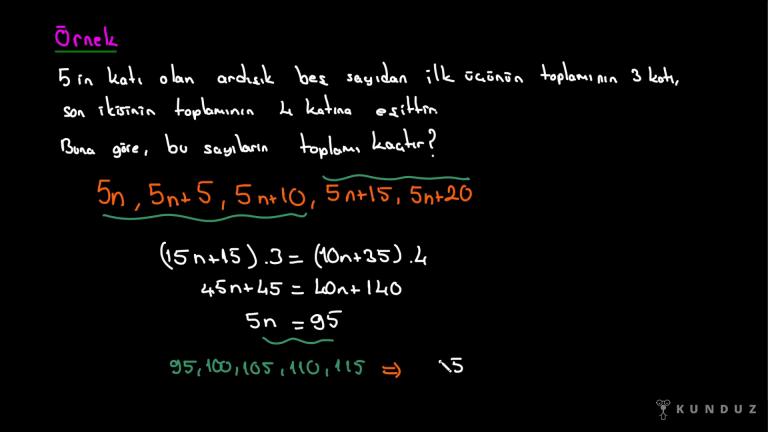 Örnek
5 in katı olan ardışık beş sayıdan ilk üçünün toplamının 3 katı,
son ikisinin toplamının 4 katına eşittir.
Buna göre, bu sayıların toplamı kaçtır?
5n, 5n+5, 5n+10, 5n+15, 5n+20
(15n+15).3 = (10n+35).4
45n+45 = 40n+140
5n = 95
95, 100, 105, 110, 115 ⇒ \5
KUNDUZ